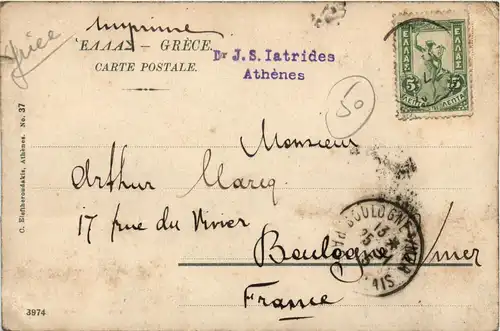 Imprimé
ΕΛΛΑΣ – GRÈCE
CARTE POSTALE.
Dr J.S. Iatrides
Athènes
ΕΛΛΑΣ ΕΛΛΑΣ
5 5
ΛΕΠΤΑ ΛΕΠΤΑ
50
Monsieur
Arthur Marcq
17 rue du Vivier
Boulogne s/mer
France
BOULOGNE-S-MER
C. Eleftheroudakis, Athènes. No. 37
3974